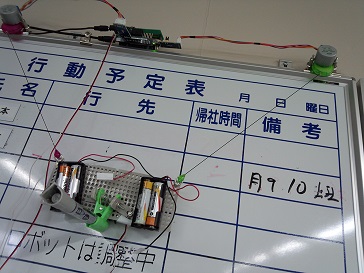 行動予定表 月 日 曜日
名 行先 帰社時間 備考
本
月9 10
ロボットは調整中